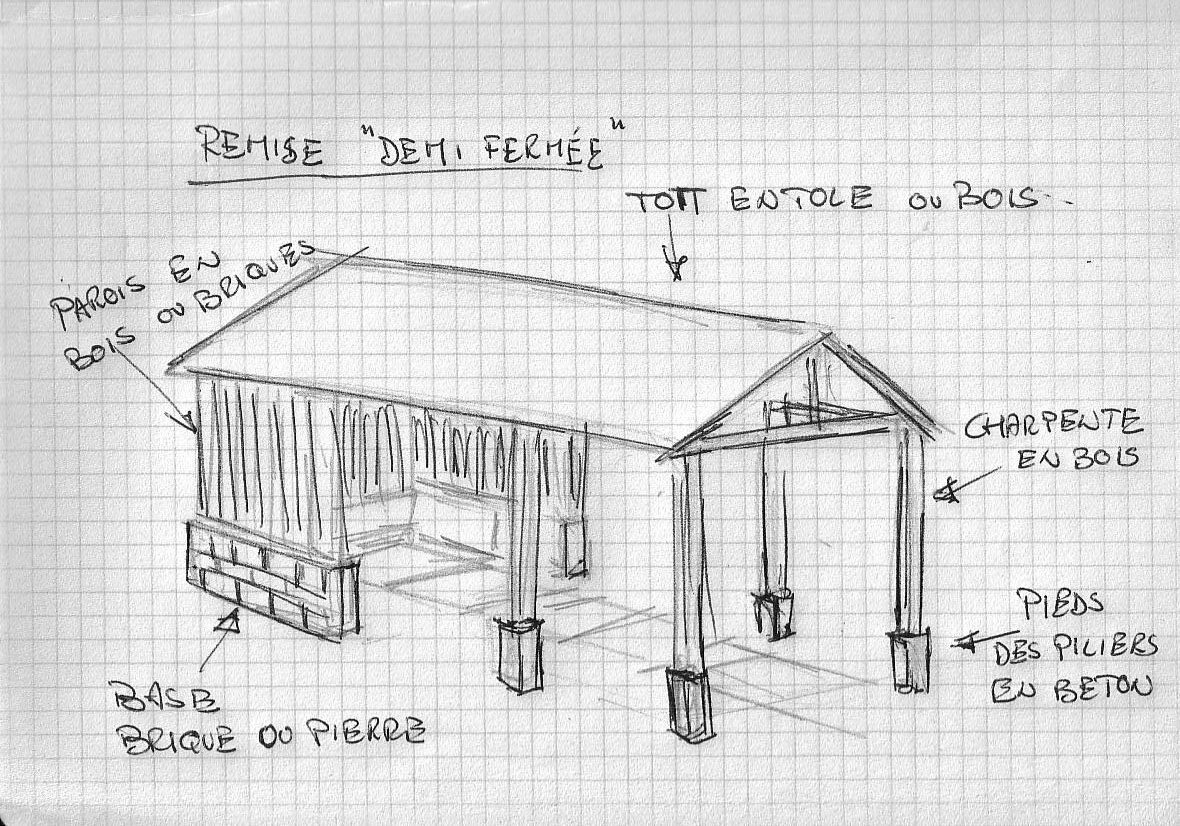 REMISE "DEMI FERMÉE"
TOIT EN TOLE OU BOIS..
PAROIS EN
BOIS OU BRIQUES
CHARPENTE
EN BOIS
PIEDS
DES PILIERS
EN BETON
BASE
BRIQUE OU PIERRE